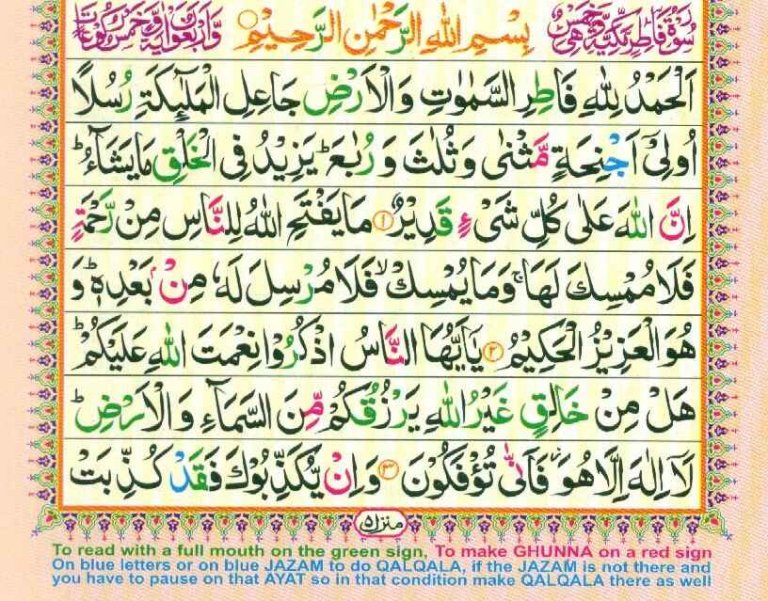 سُوْرَةُ فَاطِرٍ مَّكِّيَّةٌ وَّهِيَ خَمْسٌ وَّاَرْبَعُوْنَ اٰيَةً وَّخَمْسُ رُكُوْعَاتٍ
بِسْمِ اللّٰهِ الرَّحْمٰنِ الرَّحِيْمِ
اَلْحَمْدُ لِلّٰهِ فَاطِرِ السَّمٰوٰتِ وَالْاَرْضِ جَاعِلِ الْمَلٰٓئِكَةِ رُسُلًا
اُولِیْۤ اَجْنِحَةٍ مَّثْنٰى وَثُلٰثَ وَرُبٰعَ ؕ يَزِيْدُ فِی الْخَلْقِ مَا يَشَآءُ ؕ
اِنَّ اللّٰهَ عَلٰى كُلِّ شَیْءٍ قَدِيْرٌ ۝۱ مَا يَفْتَحِ اللّٰهُ لِلنَّاسِ مِنْ رَّحْمَةٍ
فَلَا مُمْسِكَ لَهَا ۚ وَمَا يُمْسِكْ ۙ فَلَا مُرْسِلَ لَهٗ مِنْۢ بَعْدِهٖ ؕ وَ
هُوَ الْعَزِيْزُ الْحَكِيْمُ ۝۲ يٰۤاَيُّهَا النَّاسُ اذْكُرُوْا نِعْمَتَ اللّٰهِ عَلَيْكُمْ ؕ
هَلْ مِنْ خَالِقٍ غَيْرُ اللّٰهِ يَرْزُقُكُمْ مِّنَ السَّمَآءِ وَالْاَرْضِ ؕ
لَاۤ اِلٰهَ اِلَّا هُوَ ۖ فَاَنّٰى تُؤْفَكُوْنَ ۝۳ وَاِنْ يُّكَذِّبُوْكَ فَقَدْ كُذِّبَتْ
منزل ۵
To read with a full mouth on the green sign, To make GHUNNA on a red sign
On blue letters or on blue JAZAM to do QALQALA, if the JAZAM is not there and
you have to pause on that AYAT so in that condition make QALQALA there as well